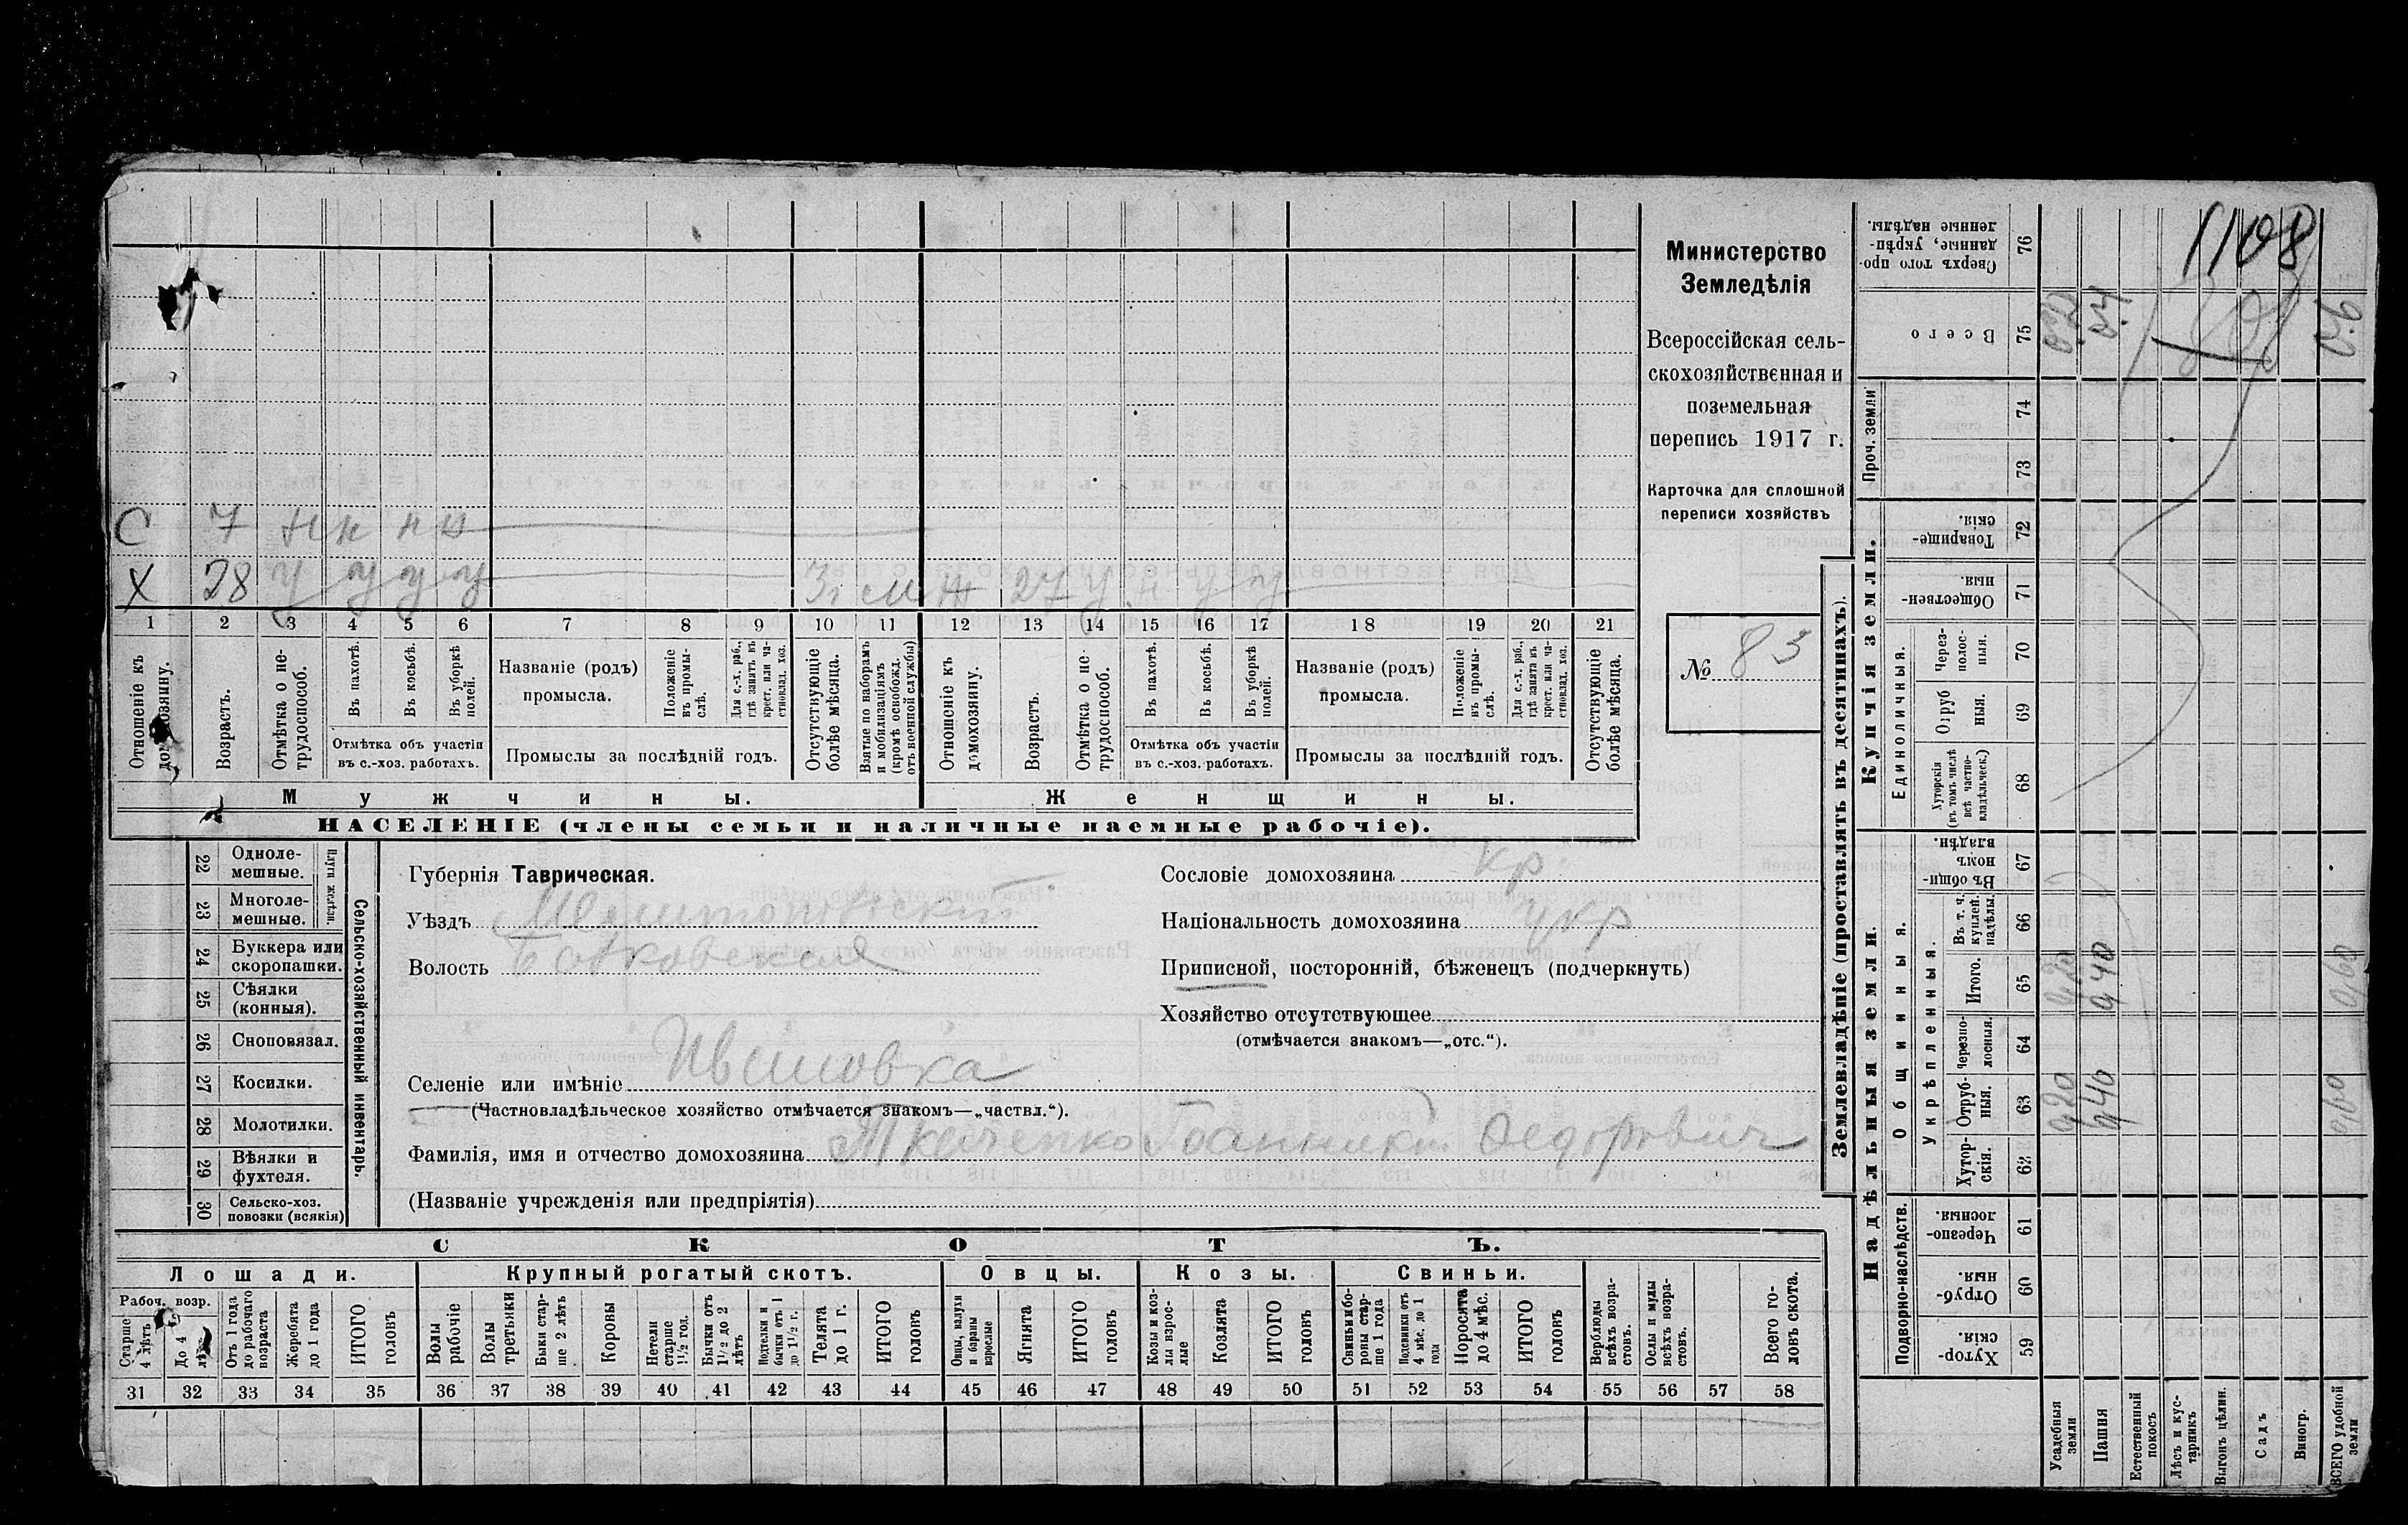 С 7 н н н н
Х 28 у у у у 3 г. м Ж 27 у н у у
1 2 3 4 5 6 7 8 9 10 11 12 13 14 15 16 17 18 19 20 21
Отношеніе къ домохозяину.
Возрастъ.
Отмѣтка о нетрудоспособ.
Въ пахотѣ.
Въ косьбѣ.
Въ уборкѣ полей.
Отмѣтка объ участіи въ с.-хоз. работахъ.
Названіе (родъ) промысла.
Положеніе въ промыслѣ.
Для с.-х. раб., гдѣ занятъ въ крест. или частновлад. хоз.
Промыслы за послѣдній годъ.
Отсутствующіе болѣе мѣсяца.
Взятые по наборамъ и мобилизаціямъ (кромѣ освобожд. отъ военной службы)
Отношеніе къ домохозяину.
Возрастъ.
Отмѣтка о нетрудоспособ.
Въ пахотѣ.
Въ косьбѣ.
Въ уборкѣ полей.
Отмѣтка объ участіи въ с.-хоз. работахъ.
Названіе (родъ) промысла.
Положеніе въ промыслѣ.
Для с.-х. раб., гдѣ занятъ въ крест. или частновлад. хоз.
Промыслы за послѣдній годъ.
Отсутствующіе болѣе мѣсяца.
Мужчины.
Женщины.
НАСЕЛЕНІЕ (члены семьи и наличные наемные рабочіе).
Министерство
Земледѣлія
Всероссійская сель-
скохозяйственная и
поземельная
перепись 1917 г.
Карточка для сплошной
переписи хозяйствъ
№ 83
22 Однолемешные.
23 Многолемешные.
Плуги желѣзн.
24 Буккера или скоропашки.
25 Сѣялки (конныя).
26 Сноповязал.
27 Косилки.
28 Молотилки.
29 Вѣялки и фухтеля.
30 Сельско-хоз. повозки (всякія)
Сельско-хозяйственный инвентарь.
Губернія Таврическая.
Уѣздъ Мелитопольскій
Волость
Сословіе домохозяина кр.
Національность домохозяина укр
Приписной, посторонній, бѣженецъ (подчеркнуть)
Хозяйство отсутствующее
(отмѣчается знакомъ—„отс.“).
Селеніе или имѣніе Ивановка
(Частновладѣльческое хозяйство отмѣчается знакомъ—„частвл.“).
Фамилія, имя и отчество домохозяина Ткаченко Іоанникій Федорович
(Названіе учрежденія или предпріятія)
СКОТЪ.
Лошади. Крупный рогатый скотъ. Овцы. Козы. Свиньи.
Рабоч. возр.
Старше 4 лѣтъ
До 4 лѣтъ
Отъ 1 года до рабочаго возраста
Жеребята до 1 года
ИТОГО головъ
Волы рабочіе
Волы третьяки
Быки старше 2 лѣтъ
Коровы
Нетели старше 1 1/2 год.
Бычки отъ 1 1/2 до 2 лѣтъ
Подтелки и бычки отъ 1 до 1 1/2 г.
Телята до 1 г.
ИТОГО головъ
Овцы, валухи и бараны взрослые
Ягнята
ИТОГО головъ
Козы и козлы взрослые
Козлята
ИТОГО головъ
Свиньи и боровы старше 1 года
Подсвинки отъ 4 мѣс. до 1 года
Поросята до 4 мѣс.
ИТОГО головъ
Верблюды всѣхъ возрастовъ.
Ослы и мулы всѣхъ возрастовъ.
Всего головъ скота.
31 32 33 34 35 36 37 38 39 40 41 42 43 44 45 46 47 48 49 50 51 52 53 54 55 56 57 58
Землевладѣніе (проставлять въ десятинахъ).
1108
Сверхъ того проданные, укрѣпленные надѣлы. 76
Всего 75 0.2 0.4 0.6
Проч. земли 74
73
Купчія земли.
Товарищескія. 72
Общественныя. 71
Единоличныя.
Черезполосныя. 70
Отрубныя. 69
Хуторскія (въ томъ числѣ всѣ частновладѣльческ.) 68
Надѣльныя земли.
Общинныя.
Въ общинномъ владѣн. 67
Укрѣпленныя.
Въ т. ч. куплей. надѣлы. 66
Итого. 65 0,20 0,40 0,60
Черезполосныя. 64
Отрубныя. 63 0,20 0,40 0,60
Хуторскія. 62
Подворно-наслѣдств.
Черезполосныя. 61
Отрубныя. 60
Хуторскія. 59
Усадебныя земли
Пашня
Естественный покосъ
Лѣсъ и кустарникъ
Выгонъ цѣлин.
Садъ
Виногр.
ВСЕГО удобной земли